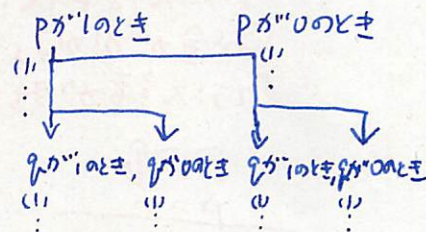 Pが1のとき Pが0のとき
(1) (1)
⋮ ⋮
qが1のとき, qが0のとき qが1のとき, qが0のとき
(1) (1) (1) (1)
⋮ ⋮ ⋮ ⋮